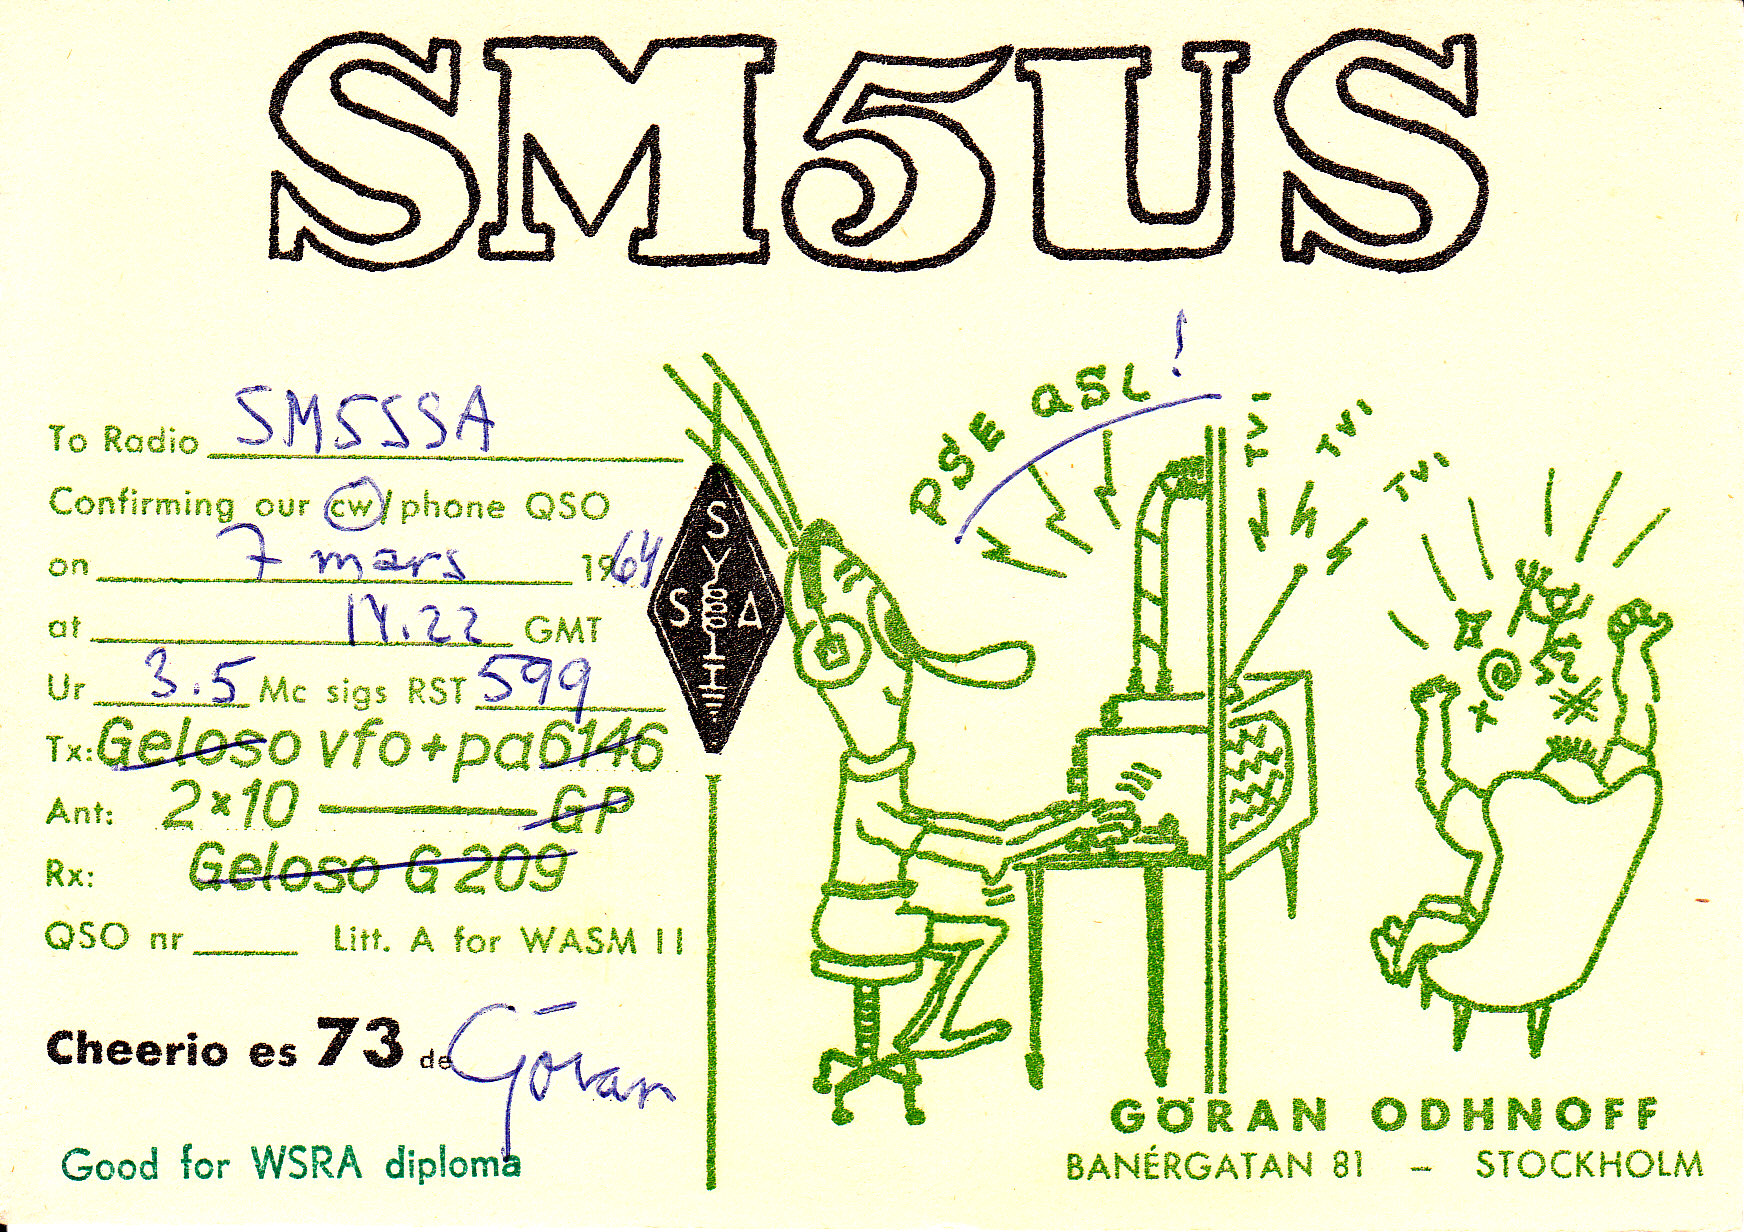 SM5US
To Radio SM5SSA
Confirming our cw/phone QSO
on 7 mars 1964
at 14.22 GMT
Ur 3.5 Mc sigs RST 599
Tx: Geloso vfo+pa6146
Ant: 2×10 — GP
Rx: Geloso G209
QSO nr Litt. A for WASM II
Cheerio es 73 de Göran
Good for WSRA diploma
SSA
PSE QSL!
TVI
TVI
TVI
GÖRAN ODHNOFF
BANÉRGATAN 81 – STOCKHOLM